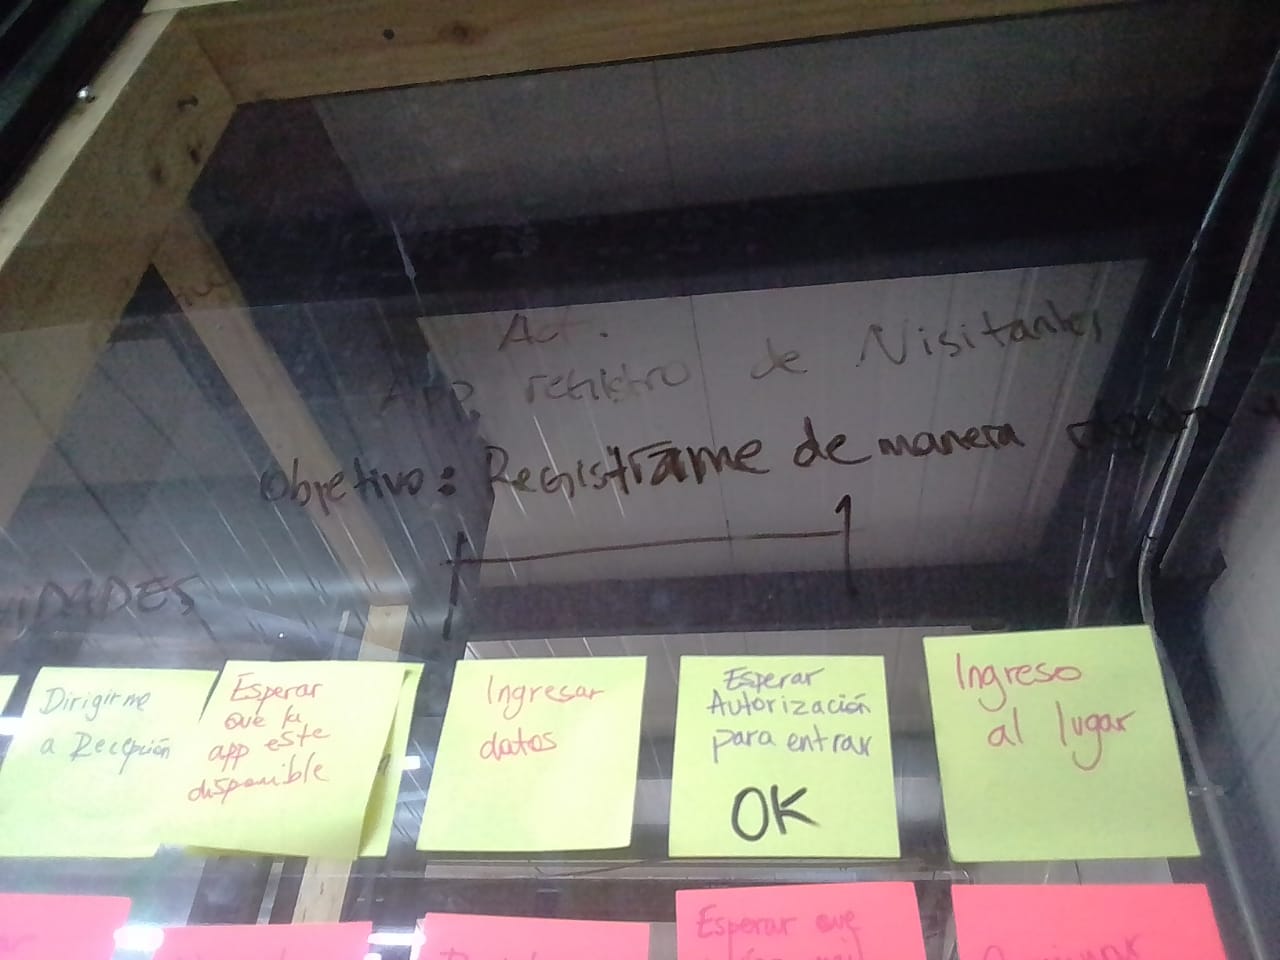 Act.
App registro de Visitantes
Objetivo: Registrarme de manera
Dirigirme
a Recepción
Esperar
que la
app este
disponible
Ingresar
datos
Esperar
Autorización
para entrar
OK
Ingreso
al lugar
Esperar que